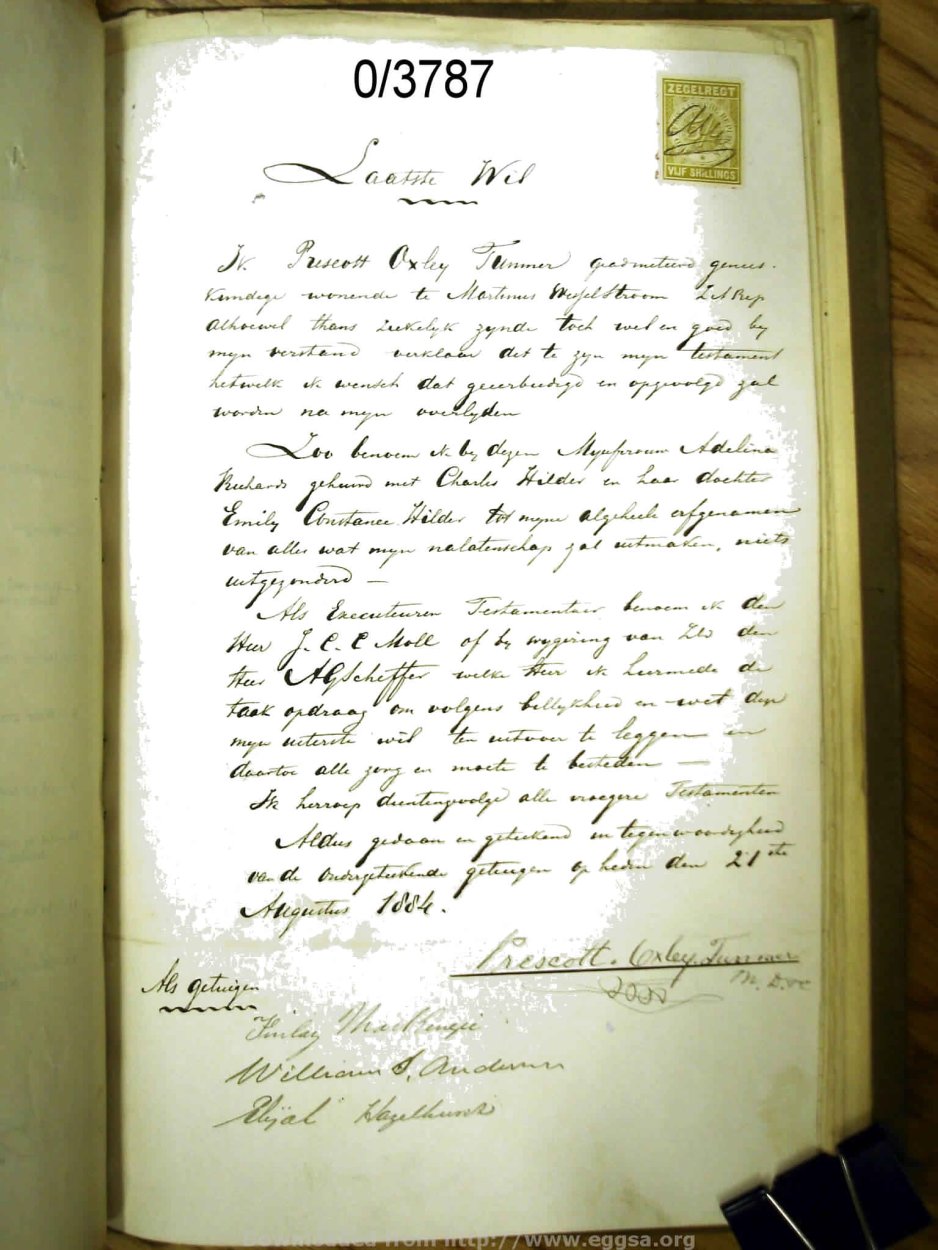 0/3787
ZEGELREGT
VIJF SHILLINGS
Laatste Wil
Ik Prescott Oxley Tunmer geadmitteerd genees-
kundige wonende te Martinus Wesselstroom Z A Rep
alhoewel thans ziekelyk zynde toch wel en goed by
myn verstand verklaar dit te zyn myn testament
hetwelk ik wensch dat geeerbiedigd en opgevolgd zal
worden na myn overlyden
Zoo benoem ik by dezen Myufvrouw Adelina
Richards gehuwd met Charles Hilder en haar dochter
Emily Constance Hilder tot myne algeheele erfgenamen
van alles wat myn nalatenschap zal uitmaken, niets
uitgezonderd —
Als Executeuren Testamentair benoem ik den
Heer J. C. C Moll of by wygering van den
Heer A G Scheffer welke Heer ik hiermede de
taak opdraag om volgens billykheid en wet deze
myn uiterste wil ten uitvoer te leggen en
daartoe alle zorg en moeite te besteden —
Ik herroep dientengevolge alle vroegere Testamenten
Aldus gedaan en geteekend in tegenwoordigheid
van de ondergeteekende getuigen op heden den 21ste
Augustus 1884.
Prescott. Oxley Tunmer
M. D.
Als getuigen
Finlay MacKenzie
William S. Anderson
Elijah Hazelhurst
Downloaded from http://www.eggsa.org